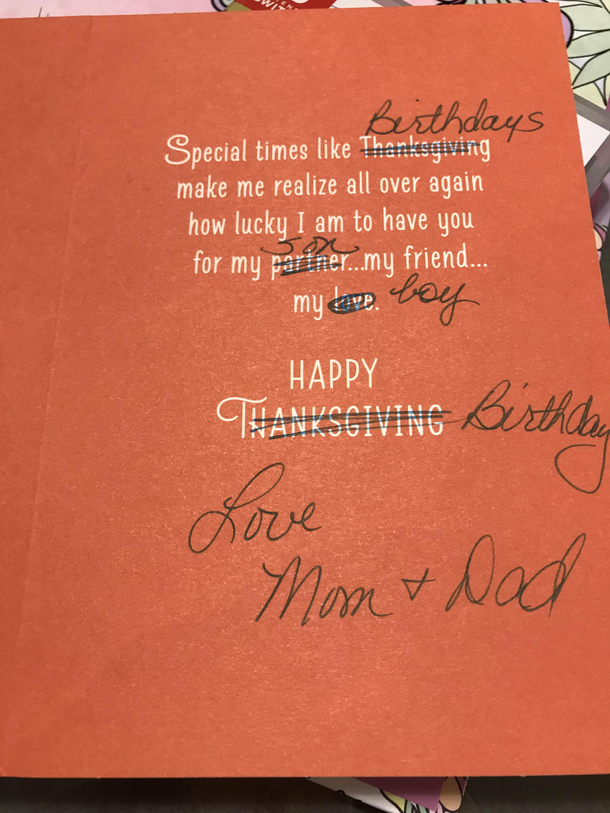 Birthdays
Special times like Thanksgiving
make me realize all over again
how lucky I am to have you
son
for my partner...my friend...
my love. boy
HAPPY
THANKSGIVING Birthday
Love
Mom + Dad